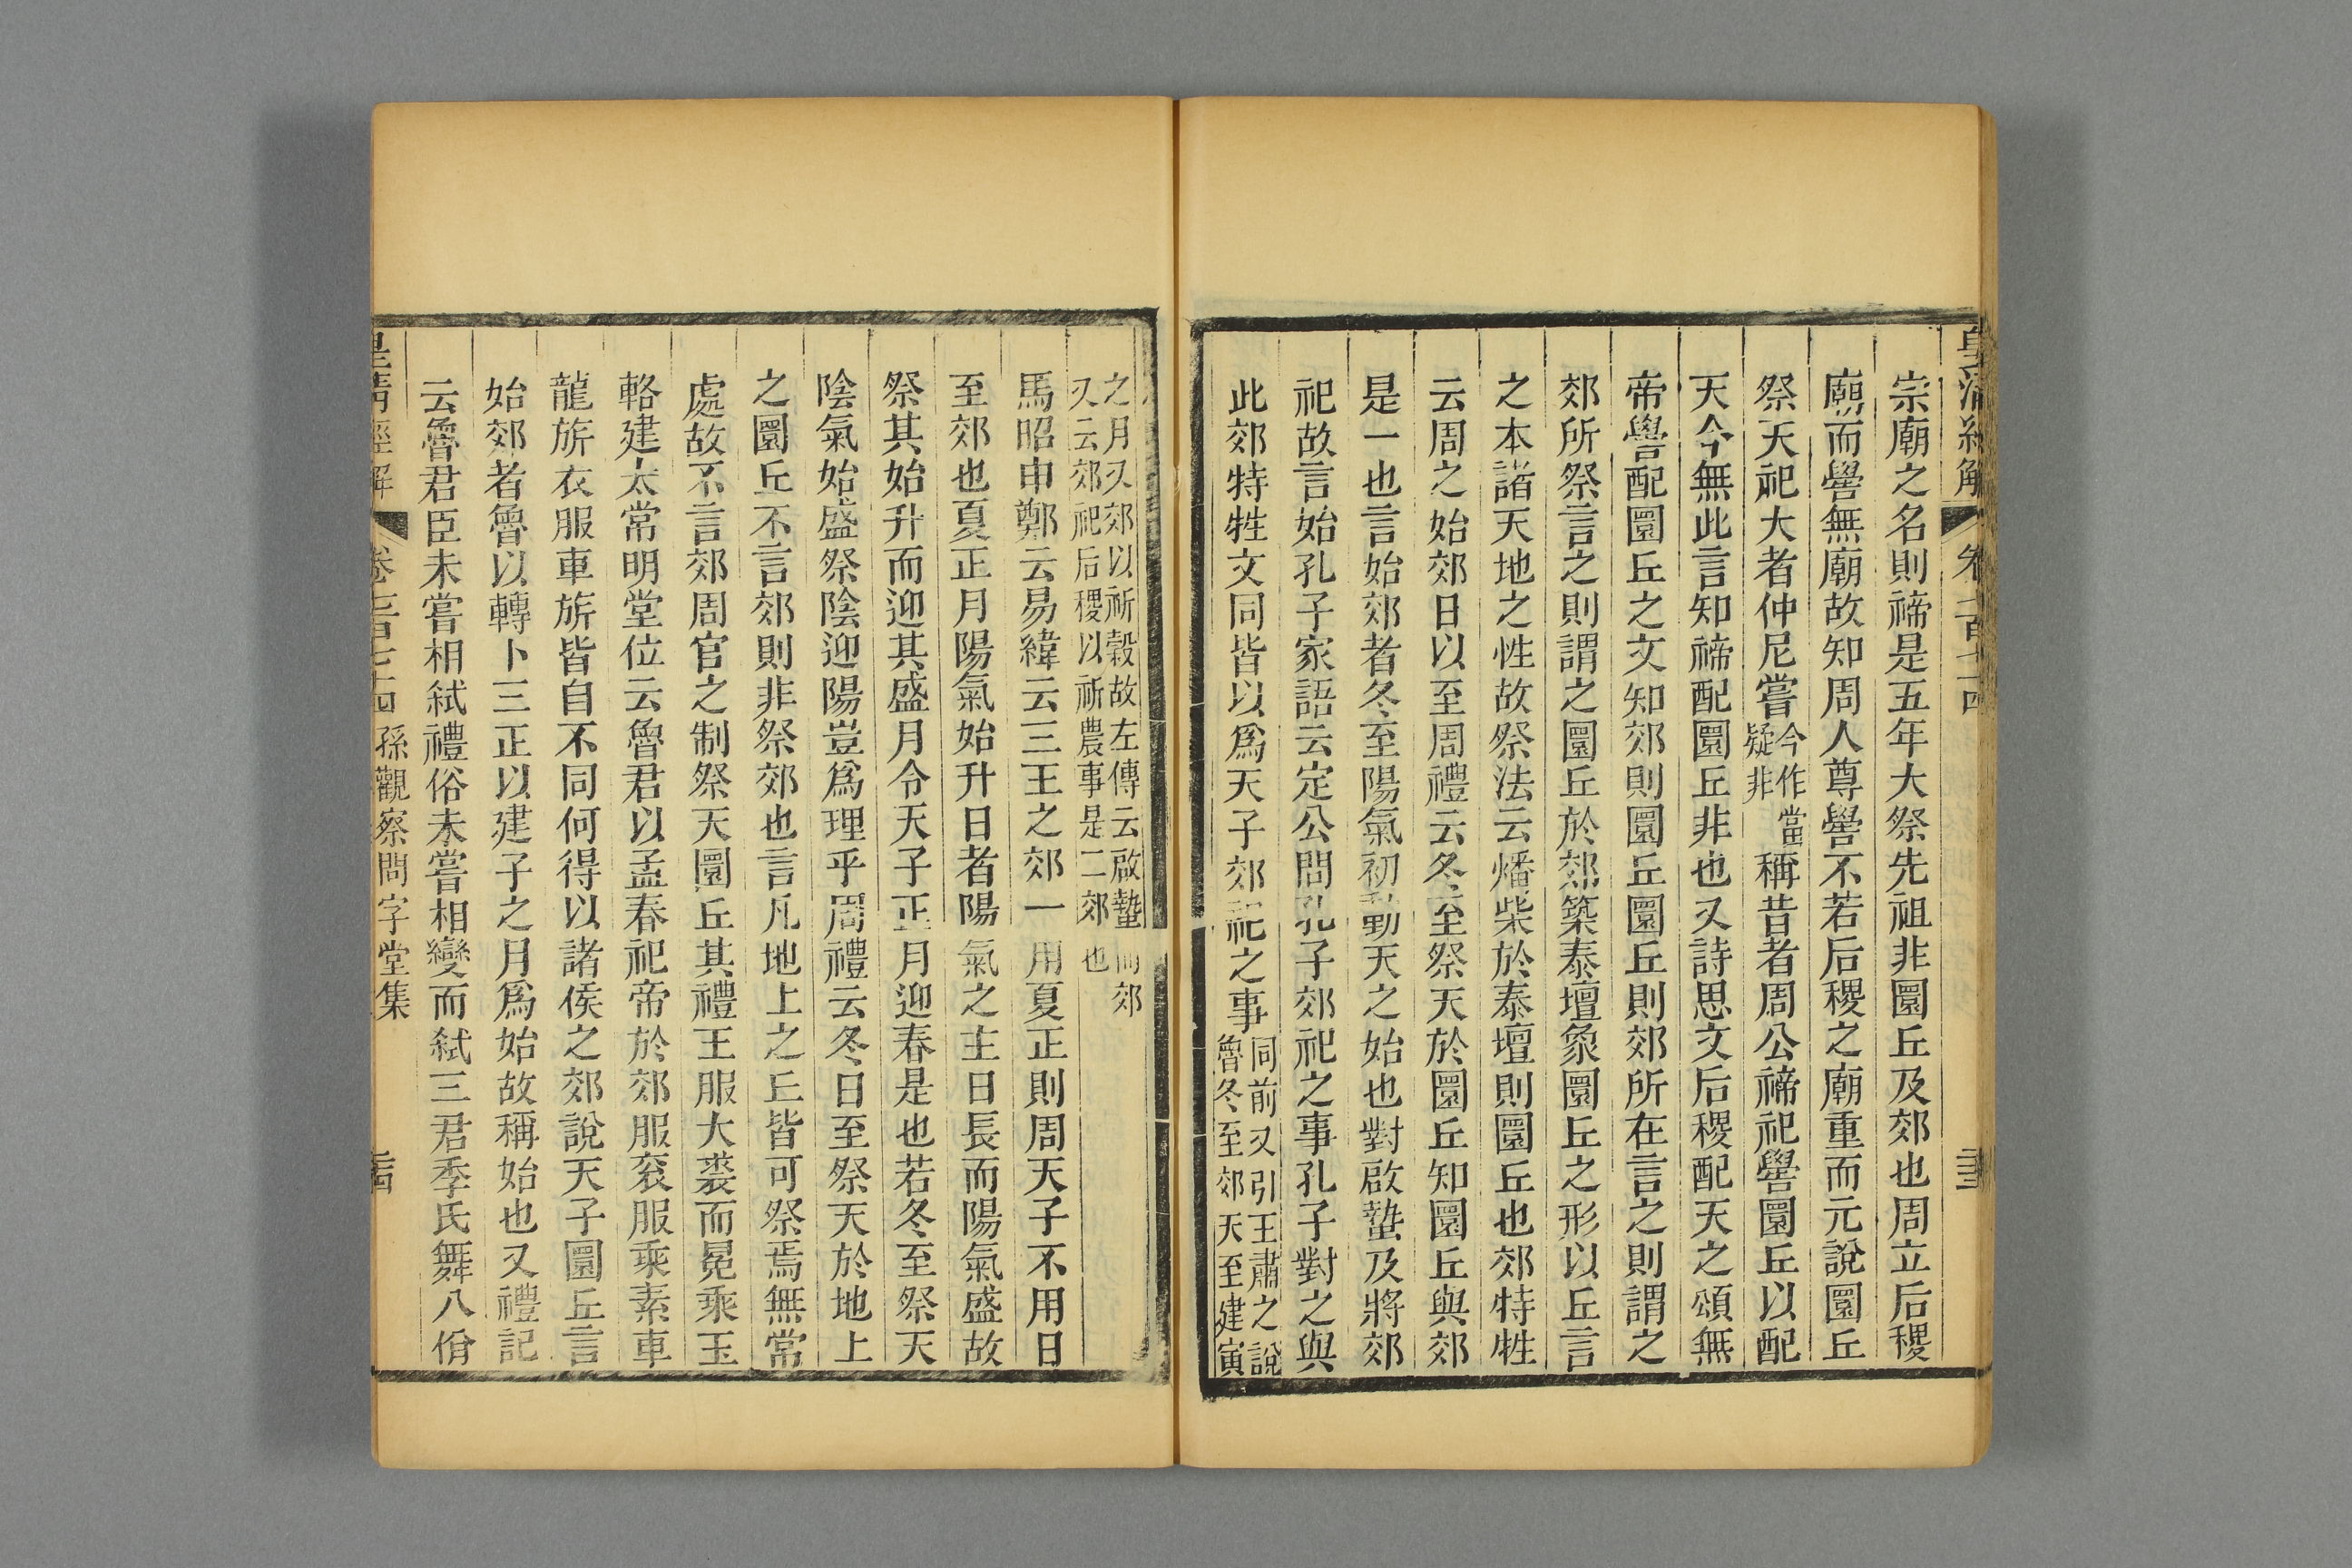 皇清經解 卷七百七十四 三
宗廟之名則禘是五年大祭先祖非圜丘及郊也周立后稷
廟而嚳無廟故知周人尊嚳不若后稷之廟重而元說圜丘
祭天祀大者仲尼嘗今作當疑非稱昔者周公禘祀嚳圜丘以配
天今無此言知禘配圜丘非也又詩思文后稷配天之頌無
帝嚳配圜丘之文知郊則圜丘圜丘則郊所在言之則謂之
郊所祭言之則謂之圜丘於郊築泰壇象圜丘之形以丘言
之本諸天地之性故祭法云燔柴於泰壇則圜丘也郊特牲
云周之始郊日以至周禮云冬至祭天於圜丘知圜丘與郊
是一也言始郊者冬至陽氣初動天之始也對啟蟄及將郊
祀故言始孔子家語云定公問孔子郊祀之事孔子對之與
此郊特牲文同皆以爲天子郊祀之事同前又引王肅之說魯冬至郊天至建寅
之月又郊以祈穀故左傳云啟蟄而郊又云郊祀后稷以祈農事是二郊也
馬昭申鄭云易緯云三王之郊一用夏正則周天子不用日
至郊也夏正月陽氣始升日者陽氣之主日長而陽氣盛故
祭其始升而迎其盛月令天子正月迎春是也若冬至祭天
陰氣始盛祭陰迎陽豈爲理乎周禮云冬日至祭天於地上
之圜丘不言郊則非祭郊也言凡地上之丘皆可祭焉無常
處故不言郊周官之制祭天圜丘其禮王服大裘而冕乘玉
輅建太常明堂位云魯君以孟春祀帝於郊服衮服乘素車
龍旂衣服車旂皆自不同何得以諸侯之郊說天子圜丘言
始郊者魯以轉卜三正以建子之月爲始故稱始也又禮記
云魯君臣未嘗相弒禮俗未嘗相變而弒三君季氏舞八佾
皇清經解 卷七百七十四 孫觀察問字堂集